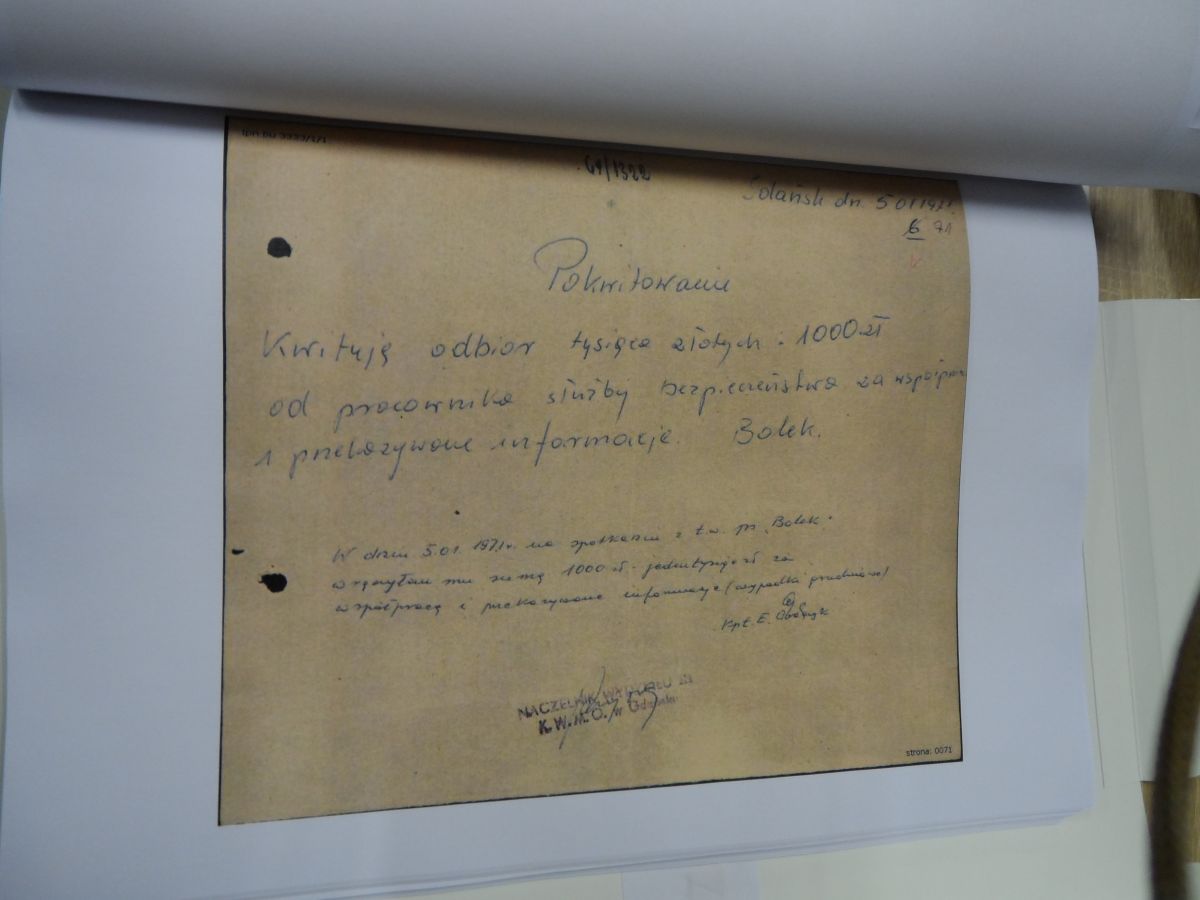 64/1322
Gdańsk dn. 5 01 1971
6 71
Pokwitowanie
Kwituję odbior tysiąca złotych : 1000 zł
od pracownika służby bezpieczeństwa za współprac
i przekazywane informacje. Bolek.
W dniu 5.01. 1971r. na spotkaniu z t.w. ps. "Bolek"
wręczyłem mu sumę 1000 zł - jeden tysiąc zł za
współpracę i przekazywane informacje / wypadki grudniowe /
Kpt. E.
NACZELNIK WYDZIAŁU III
K.W.M.O. w Gdańsku
strona: 0071